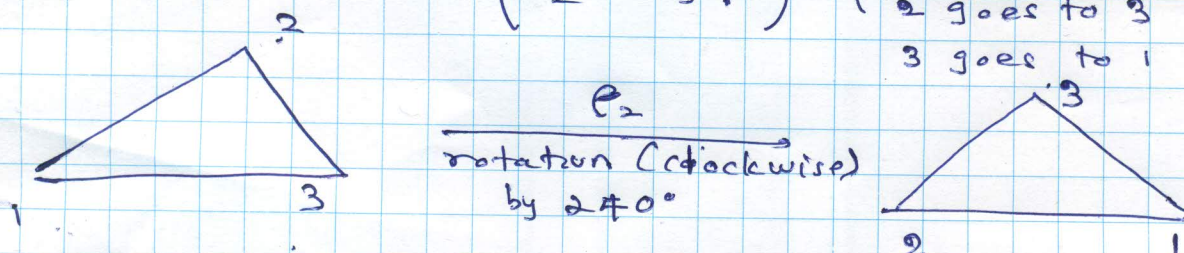 2 goes to 3
3 goes to 1
2
3
ρ₂
rotation (clockwise)
by 240°
1
3
2
1